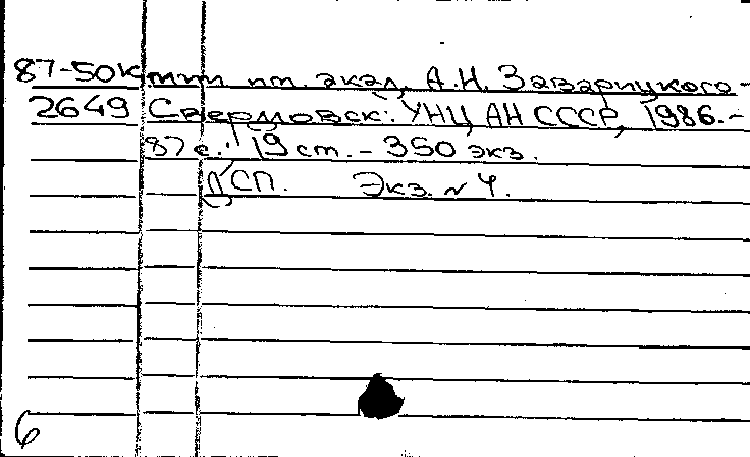 87-50к тии им. акад. А.Н. Заварицкого.-
2649 Свердловск: УНЦ АН СССР, 1986.-
87 с.: 19 см. - 350 экз.
ДСП. Экз. № 4.
6